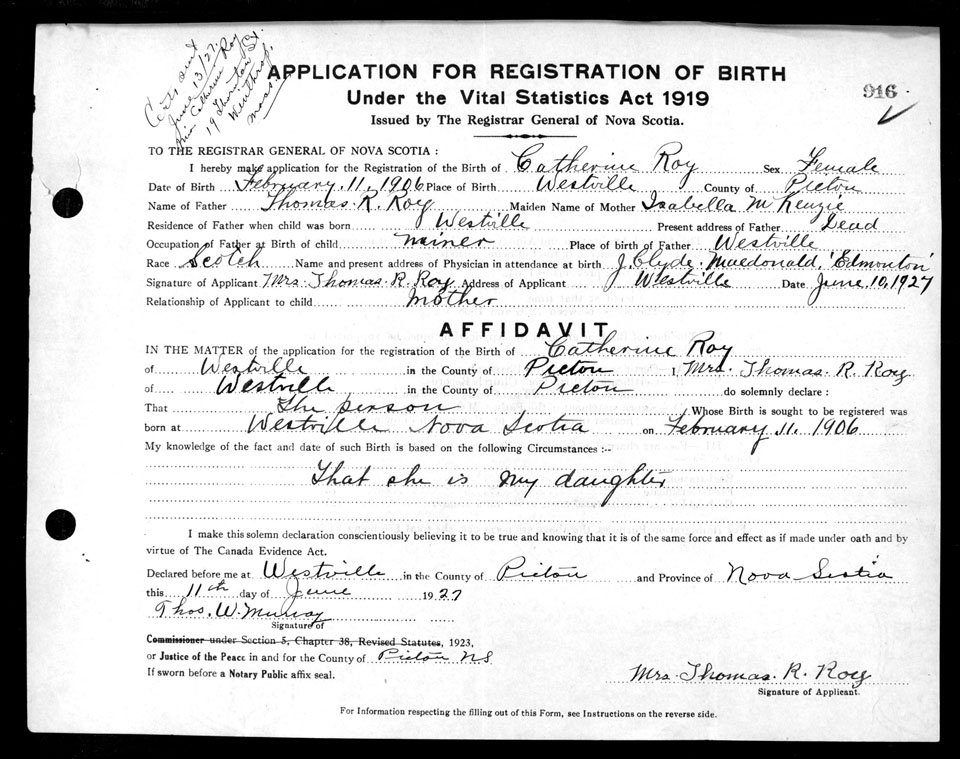 Certs sent
June 13/27.
Miss Catherine Roy
19 Thornton St.
Winthrop,
Mass
APPLICATION FOR REGISTRATION OF BIRTH
916
Under the Vital Statistics Act 1919
Issued by The Registrar General of Nova Scotia.
TO THE REGISTRAR GENERAL OF NOVA SCOTIA :
I hereby make application for the Registration of the Birth of Catherine Roy Sex Female
Date of Birth February. 11, 1906 Place of Birth Westville County of Picton
Name of Father Thomas. R. Roy Maiden Name of Mother Isabella McKenzie
Residence of Father when child was born Westville Present address of Father Dead
Occupation of Father at Birth of child miner Place of birth of Father Westville
Race Scotch Name and present address of Physician in attendance at birth J. Clyde. Macdonald, 'Edmonton'
Signature of Applicant Mrs. Thomas. R. Roy Address of Applicant Westville Date June, 10, 1927
Relationship of Applicant to child mother
AFFIDAVIT
IN THE MATTER of the application for the registration of the Birth of Catherine Roy
of Westville in the County of Picton I, Mrs. Thomas. R. Roy
of Westville in the County of Picton do solemnly declare :
That the person Whose Birth is sought to be registered was
born at Westville Nova Scotia on February 11. 1906
My knowledge of the fact and date of such Birth is based on the following Circumstances :--
That she is my daughter
I make this solemn declaration conscientiously believing it to be true and knowing that it is of the same force and effect as if made under oath and by
virtue of The Canada Evidence Act.
Declared before me at Westville in the County of Picton and Province of Nova Scotia
this 11th day of June 1927
Thos. W. Murray
Signature of
Commissioner under Section 5, Chapter 38, Revised Statutes, 1923,
or Justice of the Peace in and for the County of Picton NS
If sworn before a Notary Public affix seal.
Mrs. Thomas. R. Roy
Signature of Applicant.
For Information respecting the filling out of this Form, see Instructions on the reverse side.